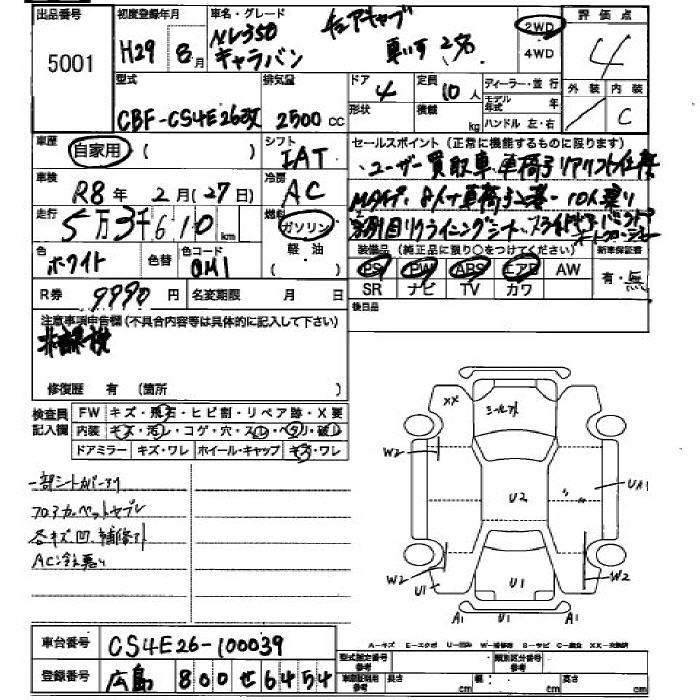 出品番号 初度登録年月 車名・グレード チェアキャブ 2WD 評価点
5001 H29 8月 NV350 キャラバン 車いす 2名 4WD 4
型式 排気量 ドア 定員 ディーラー・並行 外装 内装
CBF-CS4E26改 2500cc 4 10人 モデル年式 年 C
形状 積載 kg ハンドル 左・右
車歴 自家用 ( ) シフト IAT セールスポイント(正常に機能するものに限ります)
・ユーザー買取車・車椅子リアリフト仕様
車検 R8年 2月(27日) 冷房 AC
10人乗り
走行 5万3千610km 燃料 ガソリン 軽油( )
リクライニングシート
色 ホワイト 色替 色コード QM1 装備品(純正品に限り○をつけてください) 新車保証書
PS PW ABS エアB AW 有・無
SR ナビ TV カワ
R券 9990円 名変期限 月 日 後日品
注意事項申告欄(不具合内容等は具体的に記入して下さい)
修復歴 有 (箇所 )
検査員記入欄 FW キズ・飛石・ヒビ割・リペア跡・X要
内装 キズ・汚レ・コゲ・穴・スレ・ヘタリ・破レ
ドアミラー キズ・ワレ ホイール・キャップ キズ・ワレ
一部シートカバーアリ
フロアカーペットヤブレ
各キズ凹補修アト
AC冷え悪い
XX
W2
U2
UA1
W2
W2
U1
U1
A1
A1
A-キズ E-エクボ U-凹み W-補修跡 S-サビ C-腐食 XX-交換済
車台番号 CS4E26-100039
型式指定番号 参考 類別区分番号 参考
登録番号 広島 800せ6454
車庫証明用 参考 長さ cm 幅 cm 高さ cm